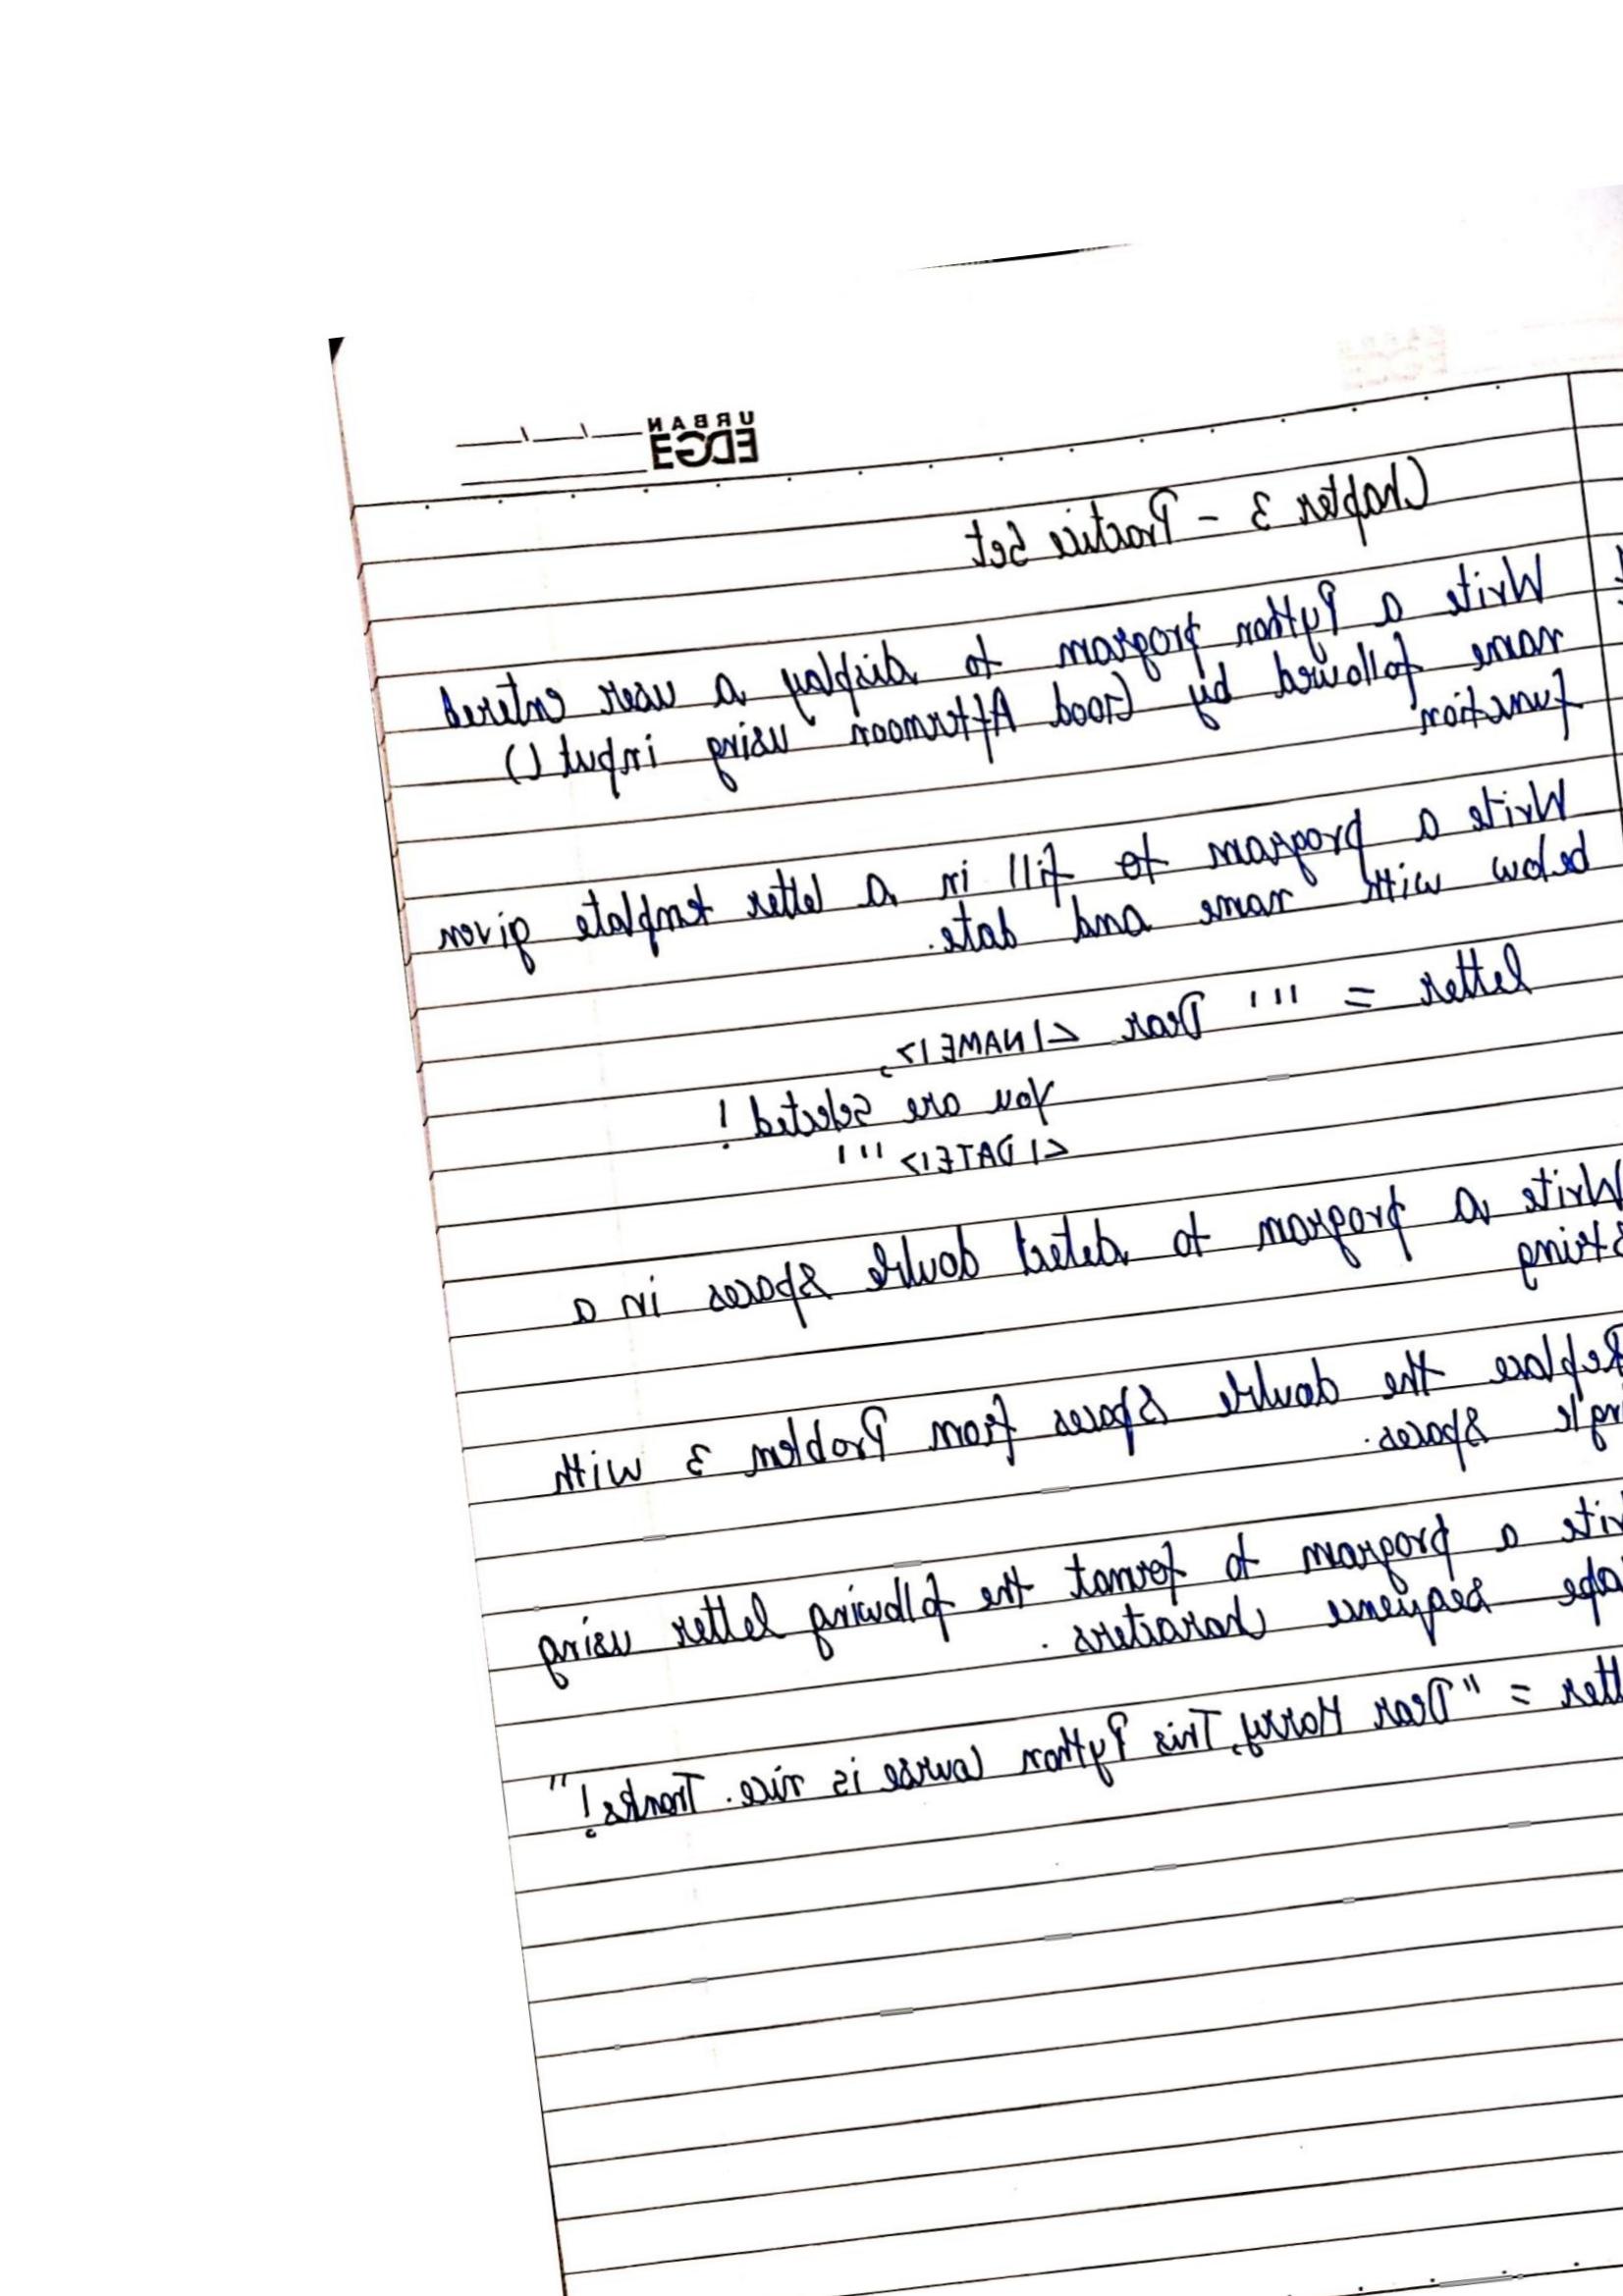 URBAN
EDGE
Chapter 3 - Practice Set
Write a Python program to display a user entered
name followed by Good Afternoon using input ()
function
Write a program to fill in a letter template given
below with name and date.
letter = ''' Dear <|NAME|>,
You are selected!
<|DATE|> '''
Write a program to detect double spaces in a
String
Replace the double spaces from Problem 3 with
spaces.
a program to format the following letter using
sequence characters.
= "Dear Harry, This Python course is nice. Thanks!"